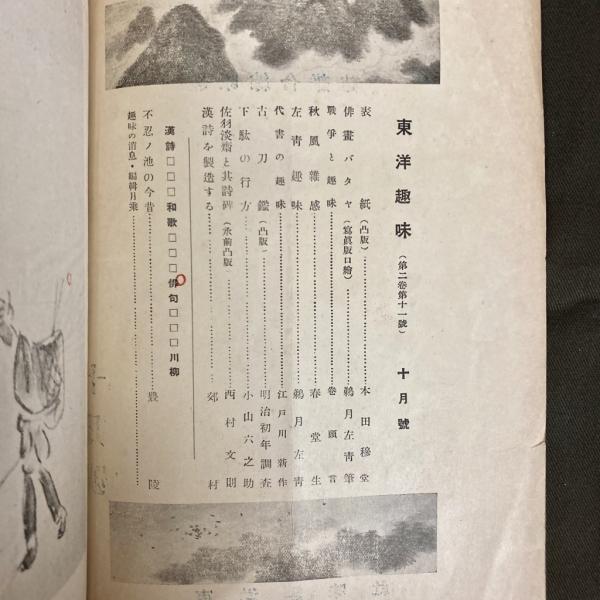 東洋趣味(第二卷第十一號) 十月號
表紙(凸版)……本田穆堂
俳畫バタヤ(寫眞版口繪)……鵜月左青筆
戰爭と趣味……卷頭言
秋風雜感……春堂生
左青趣味……鵜月左青
代書の趣味……江戸川新作
古刀鑑(凸版)……明治初年調査
下駄の行方……小山六之助
佐羽淡齋と其詩碑(永前凸版)……西村文則
漢詩を製造する……郊村
漢詩□□□和歌□□□俳句□□□川柳
不忍ノ池の今昔……鼓陵
趣味の消息・編輯月乘